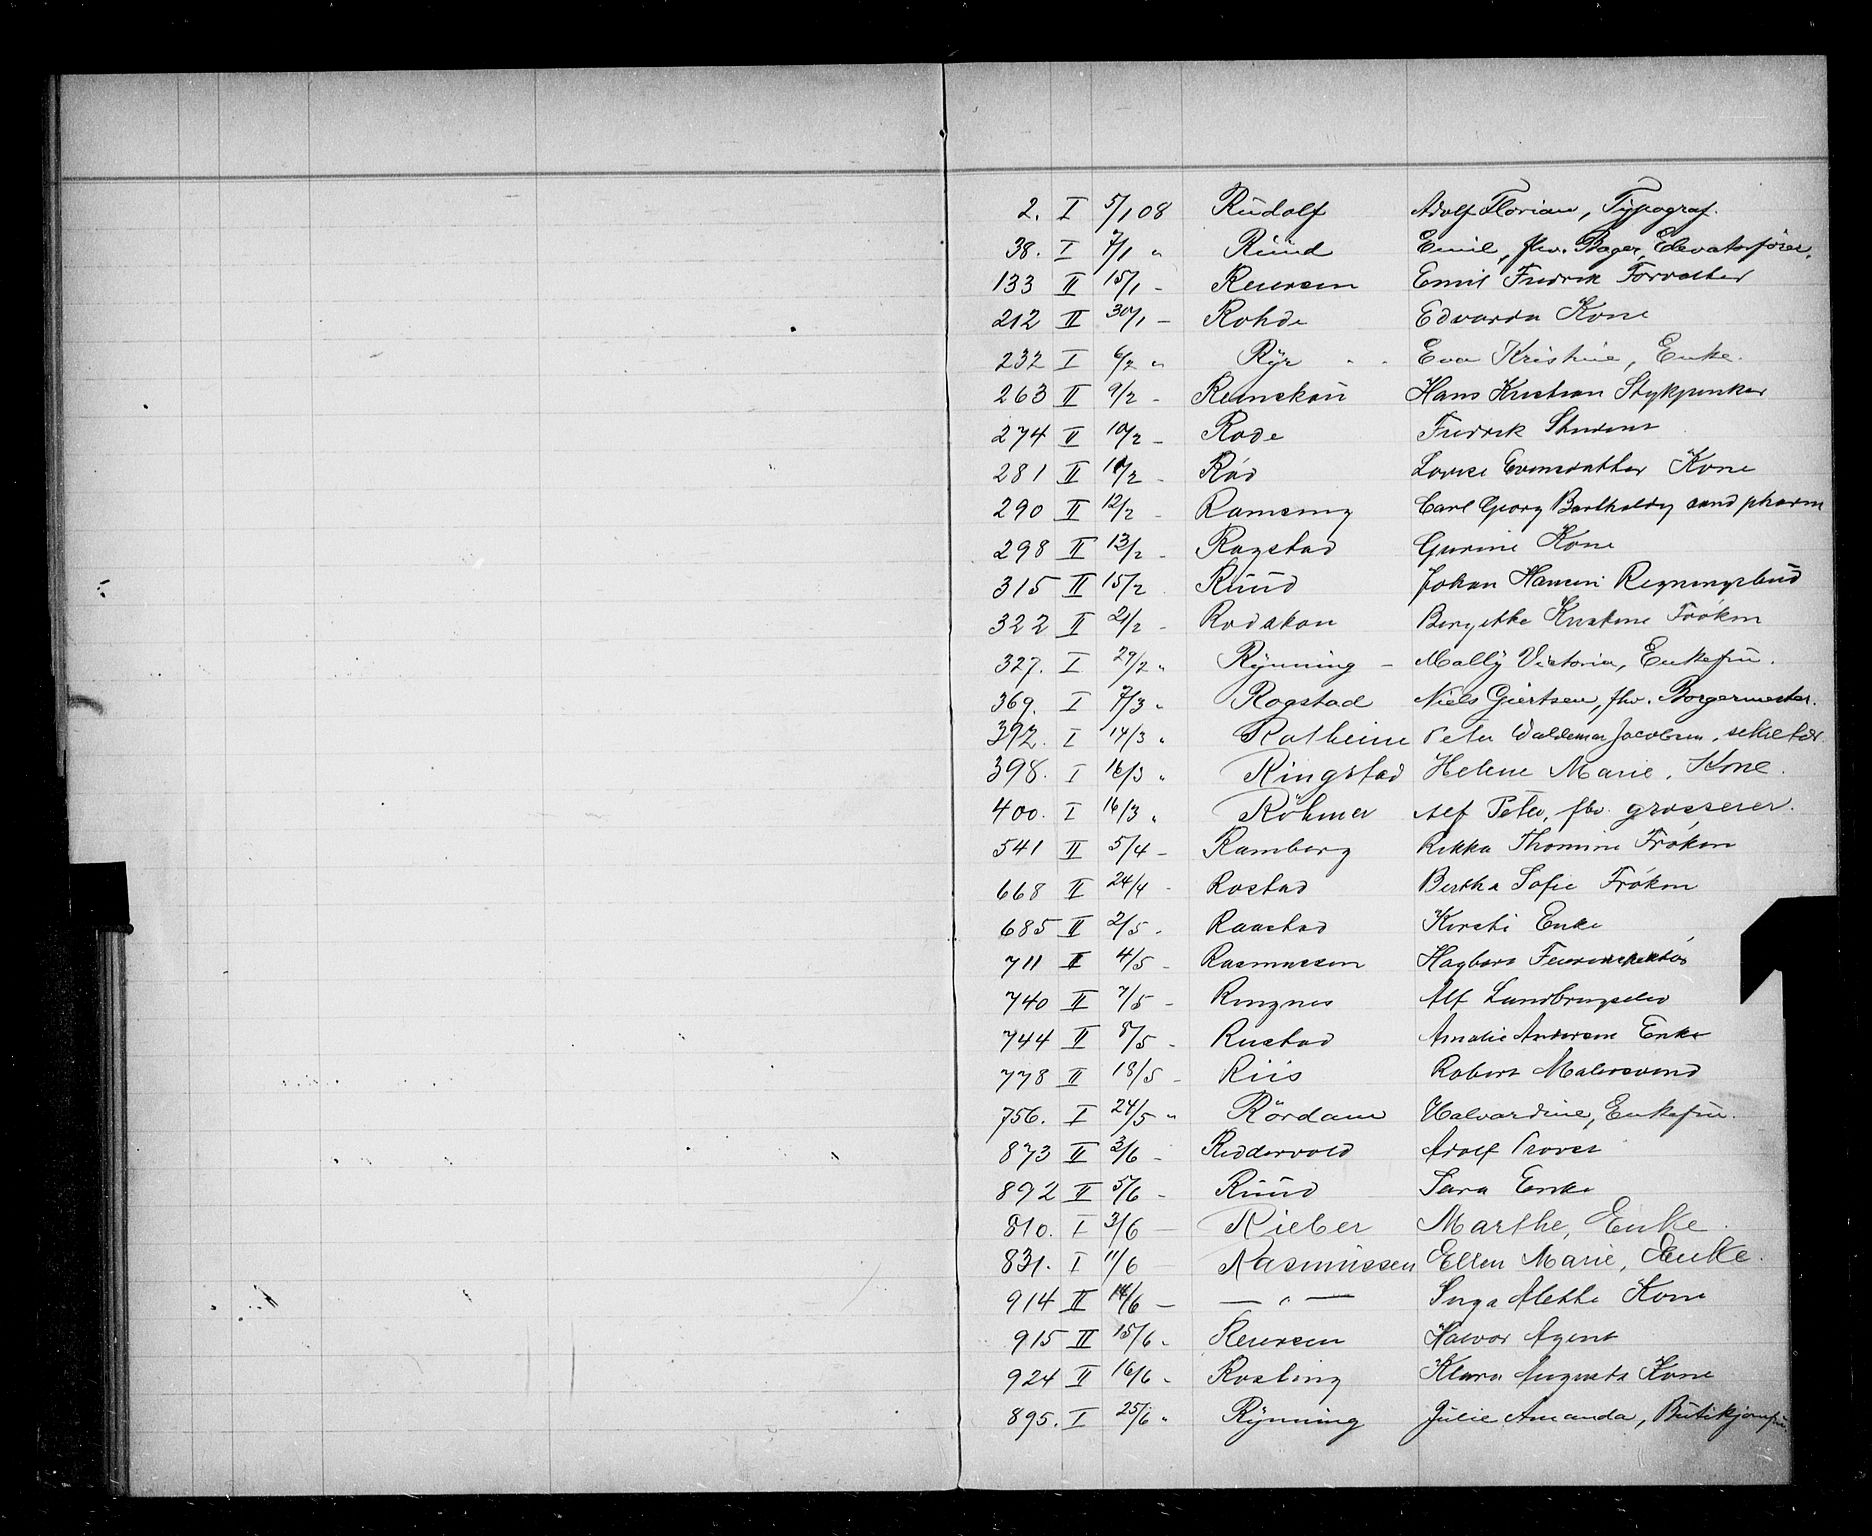 2. I 5/1 08 Rudolf Adolf Florian, Typograf.
38. I 7/1 " Ruud Emil, fhv. Bager, Elevatorfører.
133 II 15/1 - Reiersen Emil Fredrik Forvalter
212 II 30/1 - Rohde Edvarda Kone
232 I 6/2 " Ryr Eva Kristine, Enke.
263 II 9/2 - Reinskou Hans Kristian Stykjunker
274 II 10/2 - Rode Fredrik Student
281 II 10/2 - Rød Lovise Evensdatter Kone
290 II 12/2 - Ramsing Carl Georg Bartholdy cand pharm
298 II 13/2 - Rogstad Gurine Kone
315 II 15/2 Ruud Johan Hansen Regningsbud
322 II 21/2 - Rodskou Bergitte Kristine Frøken
327. I 29/2 " Rynning - Mally Victoria, Enkefru.
369. I 7/3 " Rogstad Niels Giertsen, fhv. Borgermester.
392. I 14/3 " Rotheim Peter Valdemar Jacobsen, sekretær
398. I 16/3 " Ringstad Helene Marie, Kone.
400. I 16/3 " Röhmer Alf Peter, fhv. grosserer.
541 II 5/4 - Ramberg Rikka Thomine Frøken
668 II 24/4 - Rostad Bertha Sofie Frøken
685 II 2/5 - Raastad Kirsti Enke
711 II 4/5 - Rasmussen Hagbart
740 II 7/5 - Ringnes Alf Landbrugselev
744 II 8/5 - Rustad Amalie Andersen Enke
778 II 18/5 - Riis Robert Malersvend
756. I 24/5 " Rördam Halvardine, Enkefru.
873 II 3/6 - Riddervold Adolf Provst
892 II 5/6 - Ruud Sara Enke
810. I 3/6 — Rieber Marthe, Enke.
831. I 11/6 — Rasmussen Ellen Marie, Enke.
914 II 14/6 — — " — Inga Mette Kone
915 II 15/6 - Reiersen Halvor Agent
924 II 16/6 - Rosting Klara Augusta Kone
895. I 25/6 " Rynning Julie Amanda, Butikjomfru